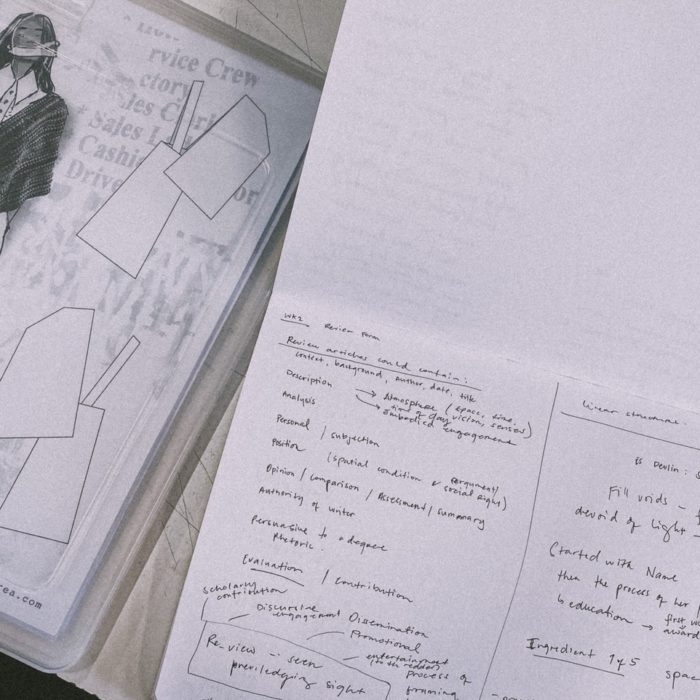 rvice Crew
ctory
Sales
Sales
Cashi
Drive
or
rea.com
WK2 Review Form
Review articles could contain:
context, background, author, date, title
Description → Atmosphere (space, time,
time of day, vision, senses)
→ embodied engagement
Analysis
Personal / subjection
Position (spatial condition & argument/
social right)
Opinion / comparison / Assessment / summary
Authority of writer
Persuasive to a degree
Rhetoric.
Evaluation / contribution
scholarly
contribution
Discursive
engagement
Dissemination
Promotional
entertainment
(to the reader)
Re-view — seen
priviledging sight
process of
framing
linear
Es Devlin:
Fill voids –
devoid of light
Started with Name
then the process of her
↳ education → first
award
Ingredient 1 of 5 space